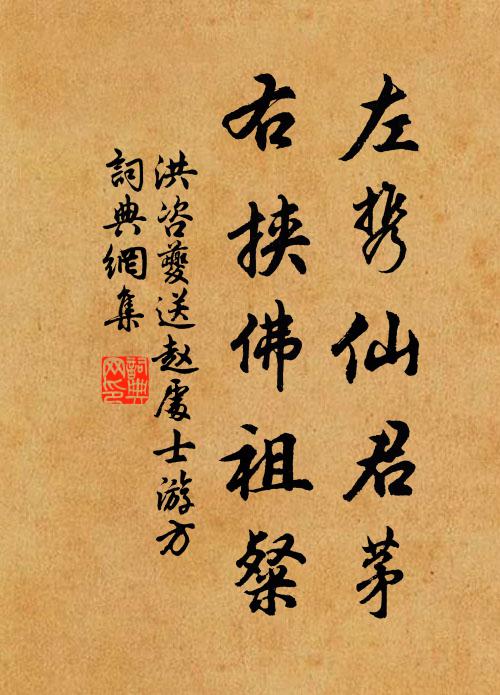 左携仙君茅
右挟佛祖粲
洪咨夔送赵處士游方
詞典網集
詞典网印